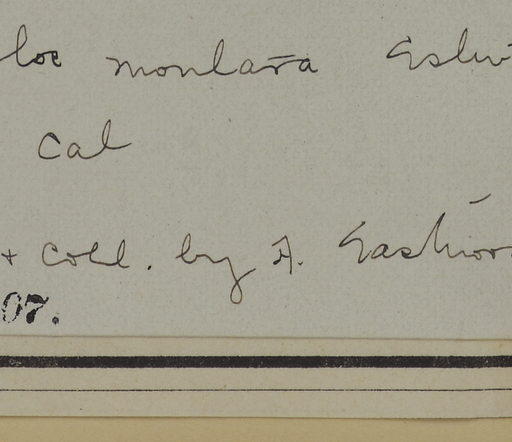 loe montara Eastw
Cal
+ Coll. by A. Eastwoo
07.